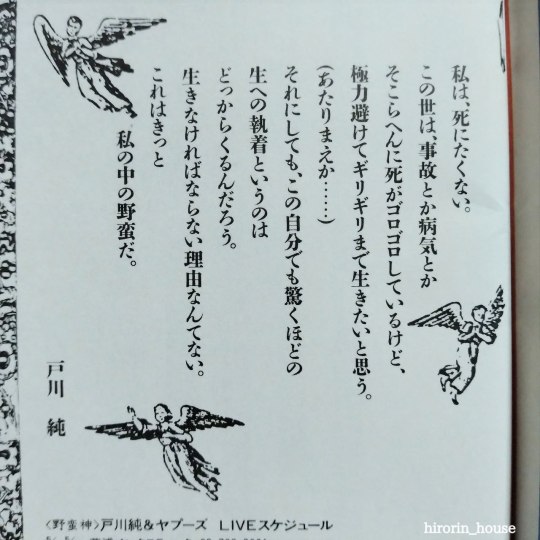 私は、死にたくない。
この世は、事故とか病気とか
そこらへんに死がゴロゴロしているけど、
極力避けてギリギリまで生きたいと思う。
(あたりまえか……)
それにしても、この自分でも驚くほどの
生への執着というのは
どっからくるんだろう。
生きなければならない理由なんてない。
これはきっと
私の中の野蛮だ。
戸川 純
〈野蛮神〉戸川純&ヤプーズ LIVEスケジュール
hirorin_house